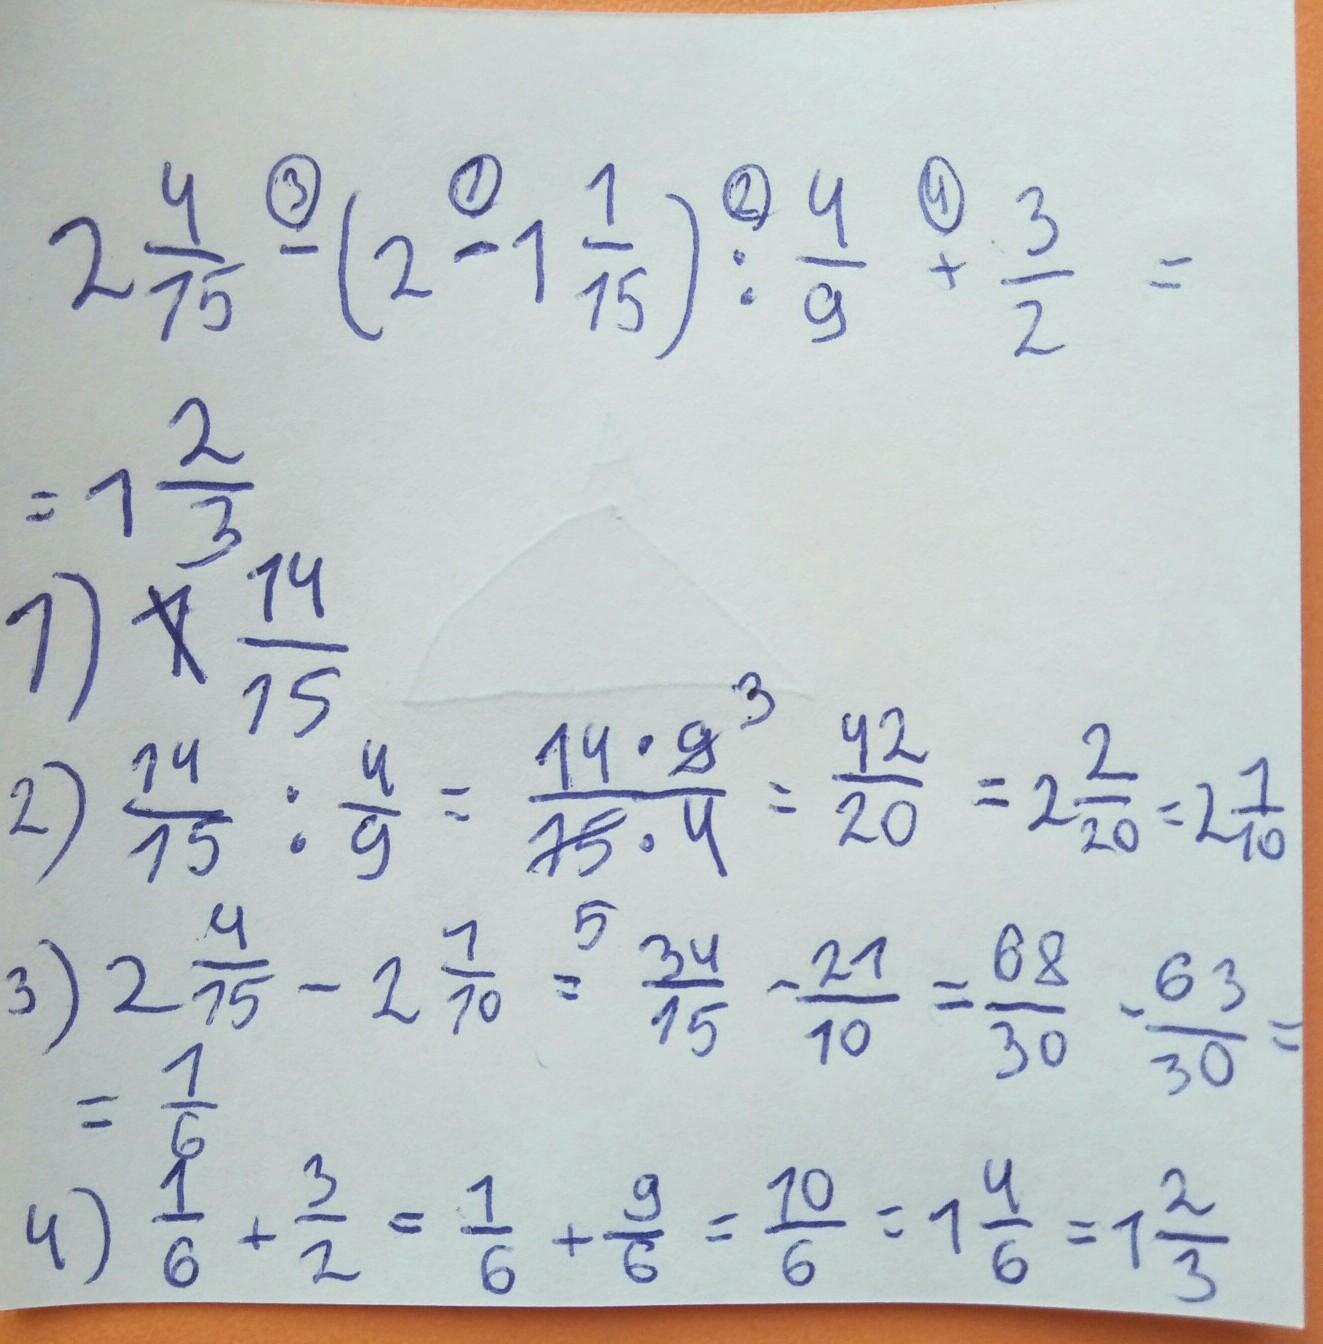 2 4/15 ③ - (2 ① - 1 1/15) ② : 4/9 ④ + 3/2 =
= 1 2/3
1) 14/15
2) 14/15 : 4/9 = 14 · 9 3 / 15 · 4 5 = 42/20 = 2 2/20 = 2 1/10
3) 2 4/15 - 2 1/10 = 34/15 - 21/10 = 68/30 - 63/30 =
= 1/6
4) 1/6 + 3/2 = 1/6 + 9/6 = 10/6 = 1 4/6 = 1 2/3